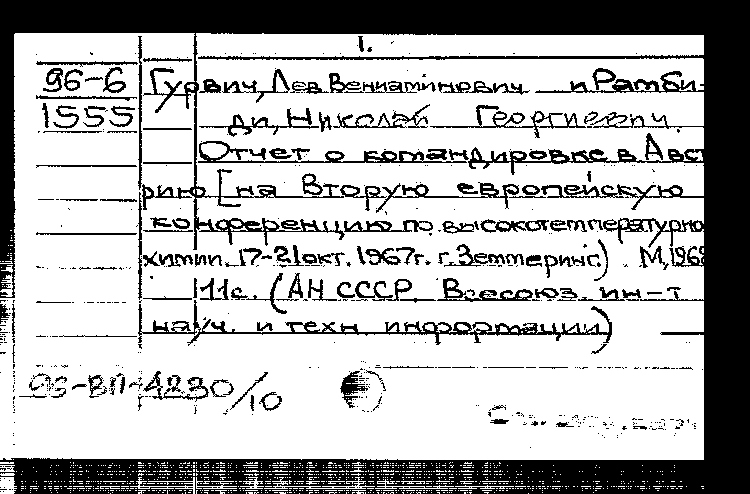 1.
96-6 Гурвич, Лев Вениаминович и Рамби-
1555 ди, Николай Георгиевич.
Отчет о командировке в Авст
рию [на Вторую европейскую
конференцию по высокотемпературно
химии. 17-21 окт. 1967г. г. Земмеринг.) М, 1968
11с. (АН СССР. Всесоюз. ин-т
науч. и техн. информации)
96-ВП-4230/10